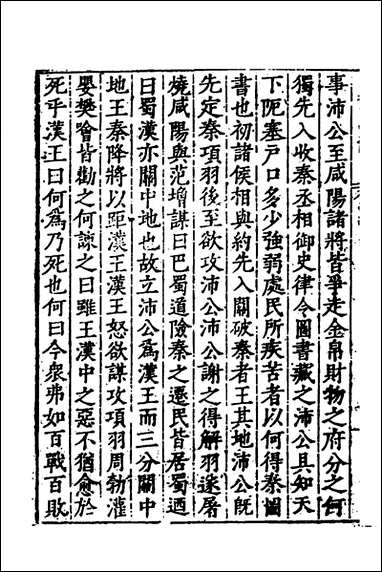 事沛公至咸陽諸將皆爭走金帛財物之府分之何
獨先入收秦丞相御史律令圖書藏之沛公具知天
下阨塞戸口多少強弱處民所疾苦者以何得秦圖
書也初諸侯相與約先入關破秦者王其地沛公旣
先定秦項羽後至欲攻沛公沛公謝之得解羽遂屠
燒咸陽與范增謀曰巴蜀道險秦之遷民皆居蜀迺
曰蜀漢亦關中地也故立沛公爲漢王而三分關中
地王秦降將以距漢王漢王怒欲謀攻項羽周勃灌
嬰樊噲皆勸之何諫之曰雖王漢中之惡不猶愈於
死乎漢王曰何爲乃死也何曰今衆弗如百戰百敗